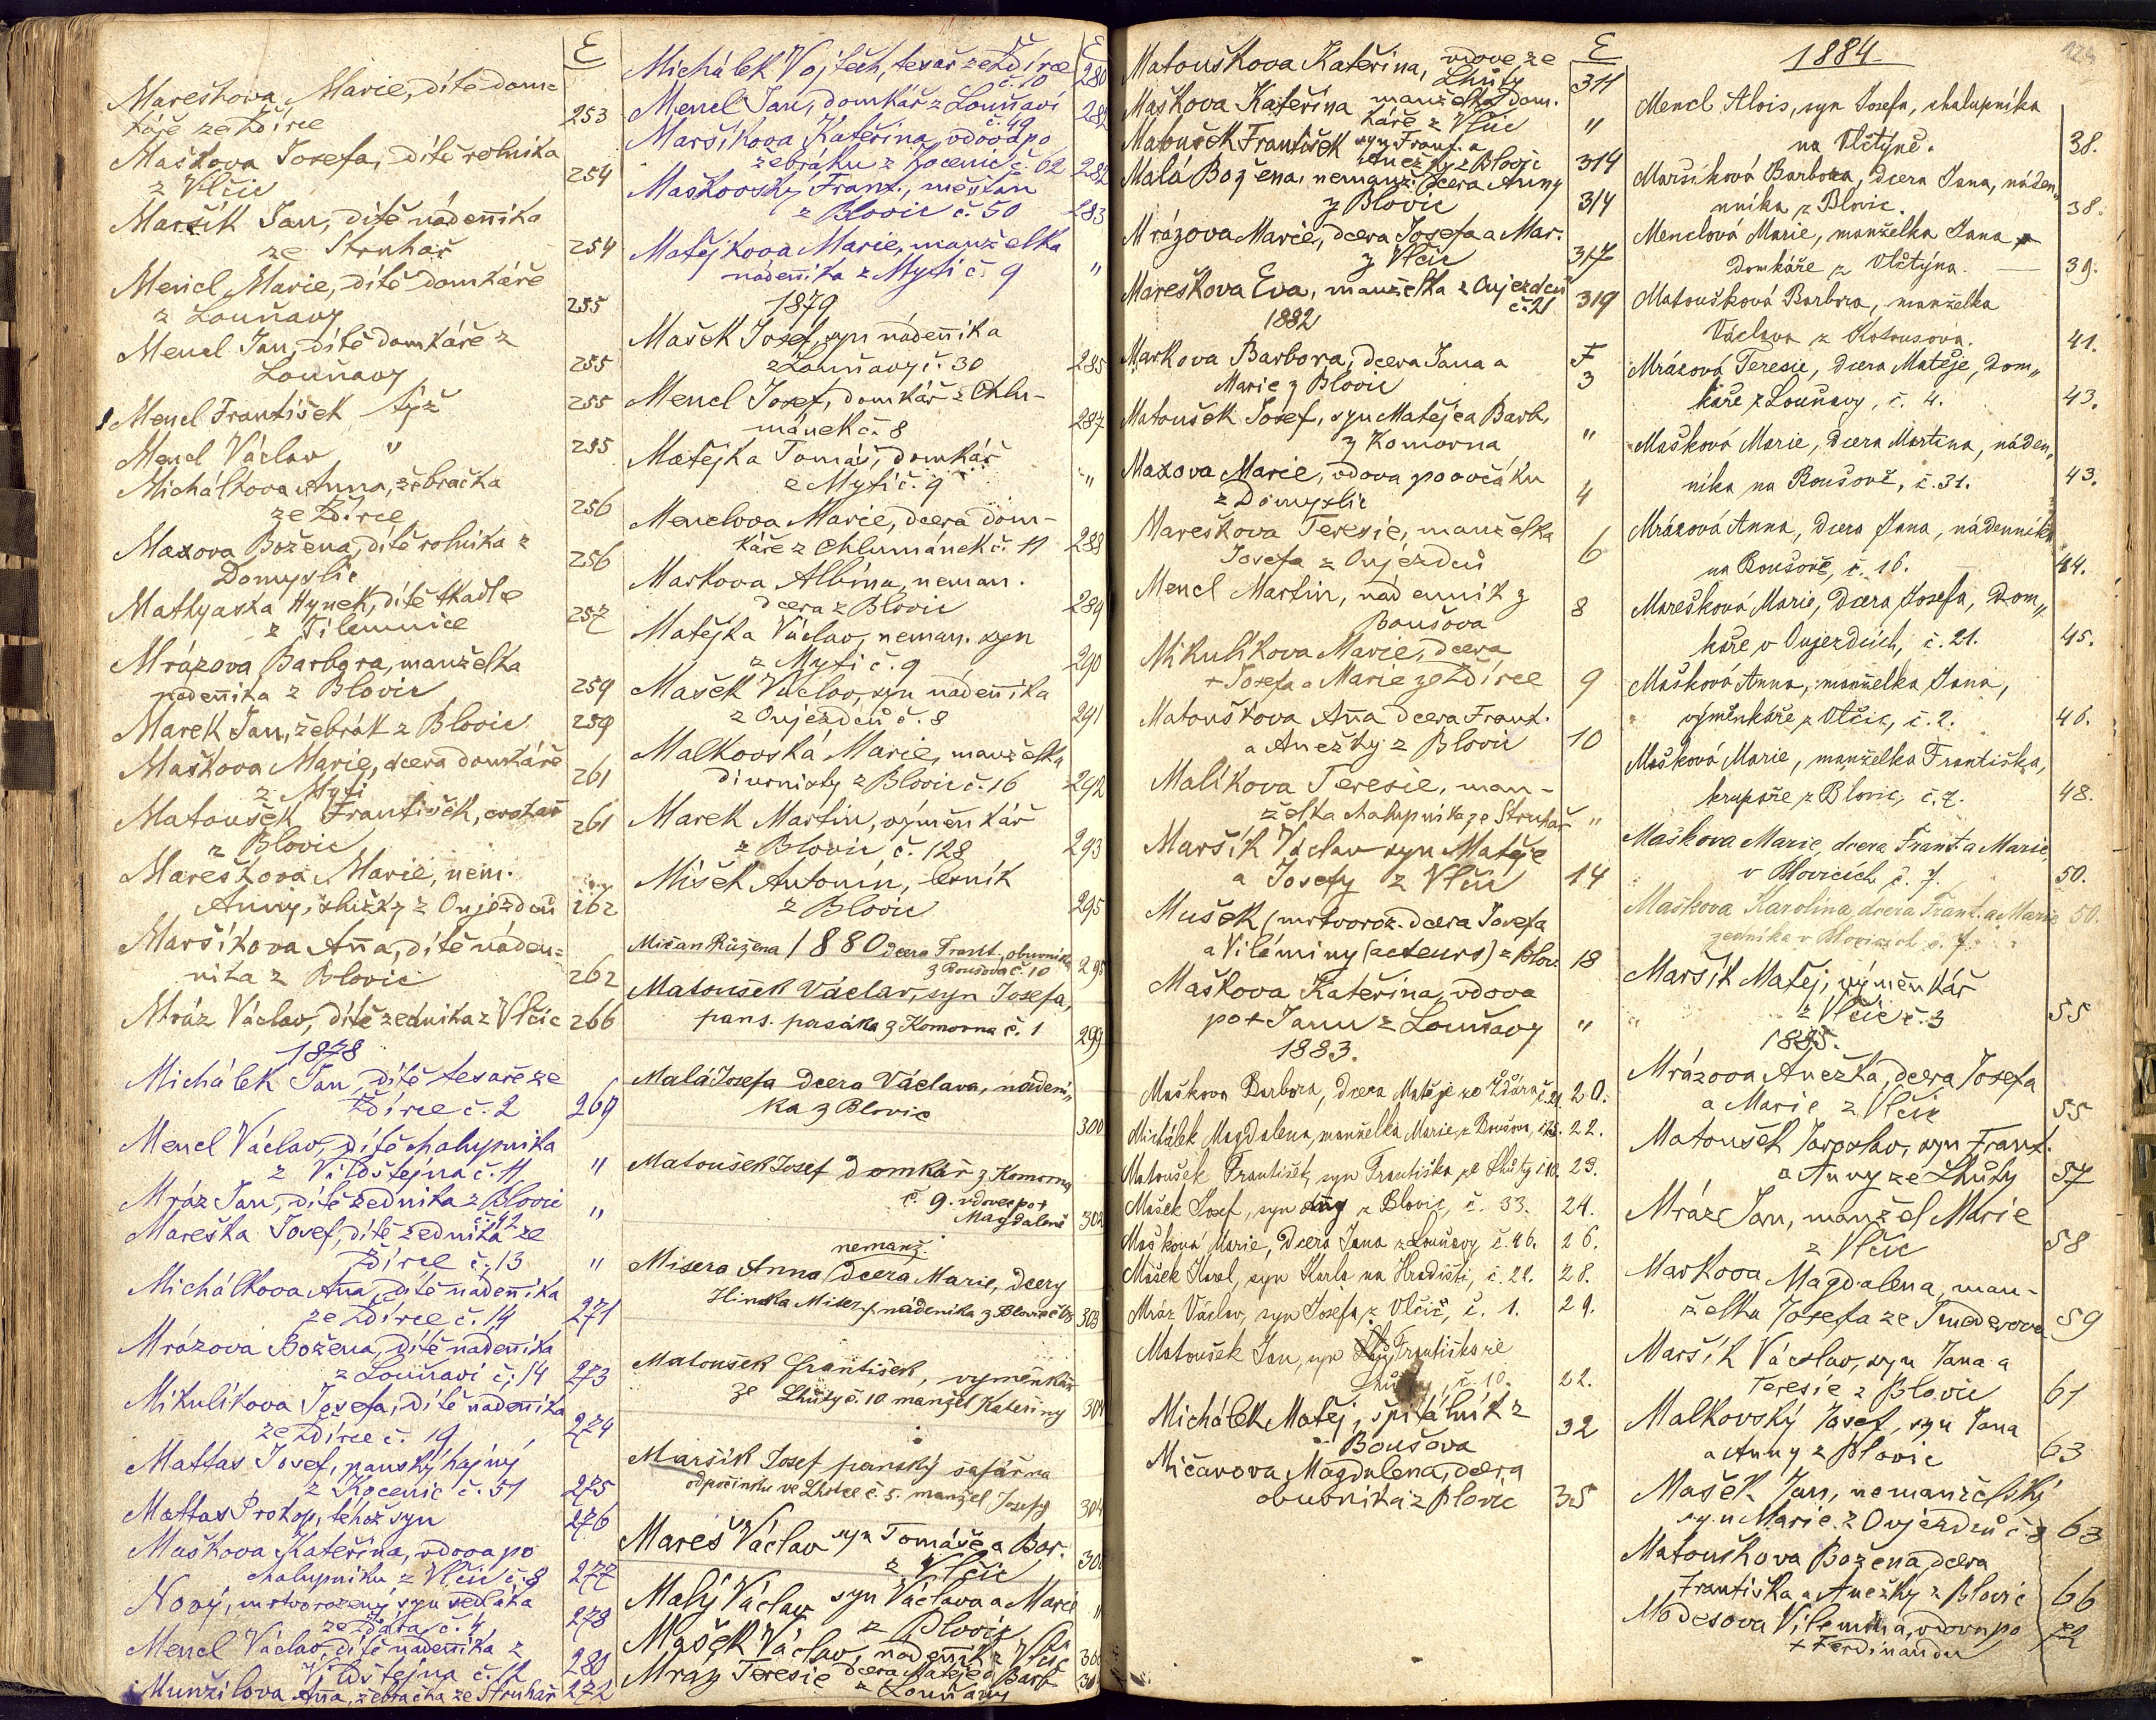 E
Mareškova Marie, dítě dom=
káře ze Ždírce 253
Maškova Josefa, dítě rolníka
z Vlčic 254
Maršík Jan, dítě nádeníka
ze Struhař 254
Mencl Marie, dítě domkáře
z Louňavy 255
Mencl Jan, dítě domkáře z
Louňavy 255
Mencl František týž 255
Mencl Václav " 255
Michálkova Anna, žebračka
ze Ždírce 256
Maxova Božena, dítě rolníka z
Domyslic 256
Mathyaska Hynek, dítě tkadle
z Tilemnice 257
Mrázova Barbora, manželka
nádeníka z Blovic 259
Marek Jan, žebrák z Blovic 259
Maškova Marie, dcera domkáře
z Mytí 261
Matoušek František,
z Blovic 261
Mareškova Marie, nem.
Anny, služky z Oujezdců 262
Maršíkova Anna, dítě náden=
níka z Blovic 262
Mráz Václav, dítě zedníka z Vlčic 266
1878
Michálek Jan, dítě tesaře ze
Ždírce č. 2 269
Mencl Václav, dítě chalupníka
z Vildštejna č. 11 "
Mráz Jan, dítě zedníka z Blovic
č. 42 "
Mareška Josef, dítě zedníka ze
Ždírce č. 13 "
Michálkova Anna, dítě nádeníka
ze Ždírce č. 14 271
Mrázova Božena, dítě nádeníka
z Louňaví č. 14 273
Mikulíkova Josefa, dítě nádeníka
ze Ždírce č. 19 274
Mattas Josef, panský hajný
z Kocenic č. 51 275
Mattas Prokop, téhož syn 276
Maškova Kateřina, vdova po
chalupníku z Vlčic č. 8 277
Nový, mrtvorozený syn sedláka
ze Ždára č. 4 278
Mencl Václav, dítě nádeníka z
Vildštejna č. 12 280
Munzilova Anna, žebračka ze Struhař 272
E
Michálek Vojtěch, tesař ze Ždírce
č. 10 280
Mencl Jan, domkář z Louňaví
č. 49 282
Maršíkova Kateřina, vdova po
žebráku z Kocenic č. 62 282
Maškovský Frant., měšťan
z Blovic č. 50 283
Matějkova Marie, manželka
nádeníka z Mytí č. 9 "
1879
Mašek Josef, syn nádeníka
z Louňavy č. 30 285
Mencl Josef, domkář z Chlu-
mánek č. 8 287
Matějka Tomáš, domkář
z Mytí č. 9 "
Menclova Marie, dcera dom-
káře z Chlumánek č. 11 288
Markova Albína, neman.
dcera z Blovic 289
Matějka Václav, neman. syn
z Mytí č. 9 290
Mašek Václav, syn nádeníka
z Oujezdců č. 8 291
Malkovská Marie, manželka
diurnisty z Blovic č. 16 292
Marek Martin, výměnkář
z Blovic č. 128 293
Míšek Antonín, lesník
z Blovic 295
Mičan Růžena 1880 dcera Frant., obuvníka
z Boušova č. 10 295
Matoušek Václav, syn Josefa,
pans. pasáka z Komorna č. 1 299
Malá Josefa dcera Václava, nádení„
ka z Blovic 300
Matoušek Josef domkář z Komorna
č. 9. vdovec po +
Magdaleně 302
nemanž.
Misera Anna dcera Marie, dcery
Hinka Misery, nádeníka z Blovic 303
Matoušek František, výměnkář
ze Lhůty č. 10 manžel Kateřiny 304
Maršík Josef panský šafář na
odpočinku ve Lhotce č. 5. manžel Josefy 304
Mareš Václav syn Tomáše a Bar.
z Vlčic 30
Malý Václav syn Václava a Marie
z Blovic "
Mašek Václav, nádenník z Vlčic 30
Mráz Teresie dcera Matěje a Barb.
z Louňavy 30
E
Matouškova Kateřina, vdova ze
Lhůty 311
Maškova Kateřina manželka dom.
káře z Vlčic "
Matoušek František syn Frant. a
Anežky z Blovic 314
Malá Božena, nemanž. dcera Anny
z Blovic 314
Mrázova Marie, dcera Josefa a Mar.
z Vlčic 317
Mareškova Eva, manželka z Oujezdců
č. 21 319
1882
F
Markova Barbora, dcera Jana a
Marie z Blovic 3
Matoušek Josef, syn Matěje a Barb.
z Komorna "
Maxova Marie, vdova po ovčáku
z Domyslic 4
Mareškova Teresie, manželka
Josefa z Oujezdců 6
Mencl Martin, nádenník z
Boušova 8
Mikulíkova Marie, dcera
+ Josefa a Marie ze Ždírce 9
Matouškova Anna dcera Frant.
a Anežky z Blovic 10
Malíkova Teresie, man-
želka chalupníka ze Struhař "
Maršík Václav syn Matěje
a Josefy z Vlčic 14
Mušek (mrtvoroz. dcera Josefa
a Vilémíny (acteurs) z Blov. 18
Maškova Kateřina, vdova
po + Janu z Louňavy "
1883.
Maškova Barbora, dcera Matěje ze Ždára č. 21. 20.
Michálek Magdalena, manželka Marie, z Boušova, č. 25. 22.
Matoušek František, syn Františka ze Lhůty č. 10. 23.
Mašek Josef, syn z Blovic, č. 33. 24.
Mašková Marie, dcera Jana z Louňavy č. 46. 26.
Mašek Karel, syn Karla na Hradišti, č. 22. 28.
Mráz Václav, syn Josefa, z Vlčic, č. 1. 29.
Matoušek Jan, syn Františka ze
Lhůty, č. 10. 22.
Michálek Matěj, špitálník z
Boušova 32
Mičanova Magdalena, dcera
obuvníka z Blovic 35
1884
Mencl Alois, syn Josefa, chalupníka
na Vlčtýně. 38.
Maršíková Barbora, dcera Jana, náden„
níka z Blovic. 38.
Menclová Marie, manželka Jana
domkáře z Vlčtýna. 39.
Matoušková Barbora, manželka
Václava z Kotousova. 41.
Mrázová Teresie, dcera Matěje, dom„
káře z Louňavy, č. 4. 43.
Mašková Marie, dcera Martina, náden„
níka na Boušově, č. 31. 43.
Mrázová Anna, dcera Jana, nádenníka
na Boušově, č. 16. 44.
Marešková Marie, dcera Josefa, dom„
káře v Oujezdcích, č. 21. 45.
Mašková Anna, manželka Jana,
výměnkáře z Vlčic, č. 2. 46.
Mašková Marie, manželka Františka,
krupaře z Blovic, č. 7. 48.
Maškova Marie, dcera Frant. a Marie
v Blovicích č. 7. 50.
Maškova Karolina, dcera Frant. a Marie 50.
zedníka v Blovicích č. 7.
Maršík Matěj, výměnkář
z Vlčic č. 3 55
1885.
Mrázova Anežka, dcera Josefa
a Marie z Vlčic 55
Matoušek Jaroslav, syn Frant.
a Anny ze Lhůty 57
Mráz Jan, manžel Marie
z Vlčic 58
Markova Magdalena, man-
želka Josefa ze Smederova 59
Maršík Václav, syn Jana a
Teresie z Blovic 61
Malkovský Josef, syn Jana
a Anny z Blovic 63
Mašek Jan, nemanželský
syn Marie z Oujezdců č. 8 63
Matouškova Božena, dcera
Františka a Anežky z Blovic 66
Modesova Vilemína, vdova po
+ Ferdinandu 72